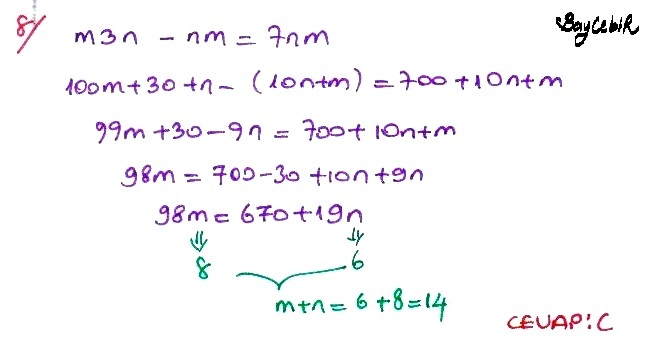 8/ m3n - nm = 7nm
BayCebiR
100m+30+n - (10n+m) = 700+10n+m
99m+30-9n = 700+10n+m
98m = 700-30+10n+9n
98m = 670+19n
⇓ ⇓
8 6
m+n = 6+8=14
CEVAP:C